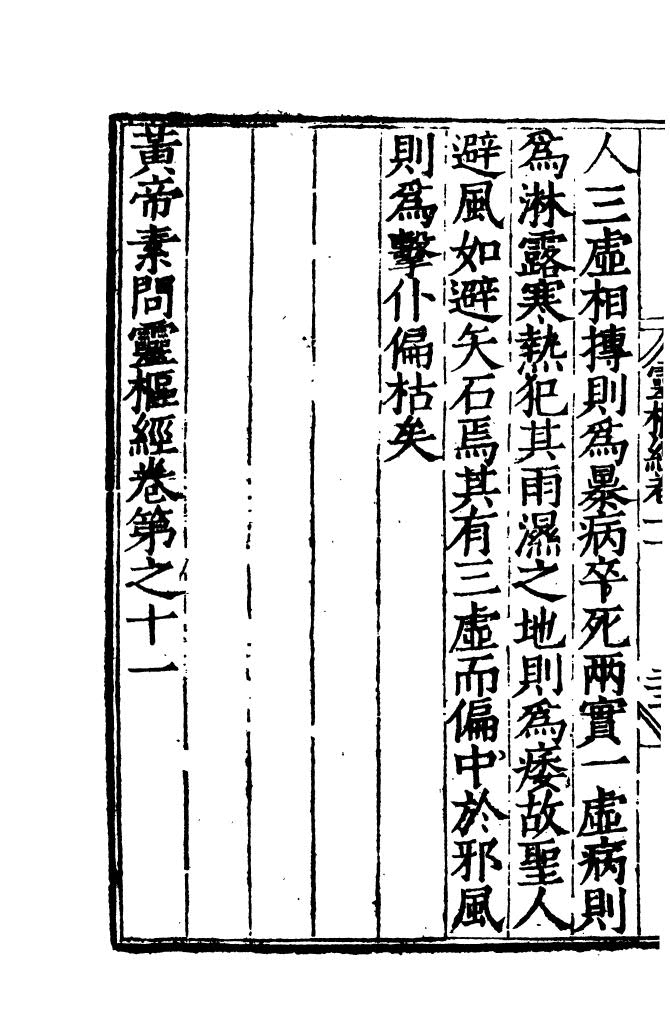 人三虛相摶則爲暴病卒死兩實一虛病則
爲淋露寒熱犯其雨濕之地則爲痿故聖人
避風如避矢石焉其有三虛而偏中於邪風
則爲擊仆偏枯矣
黃帝素問靈樞經卷第之十一